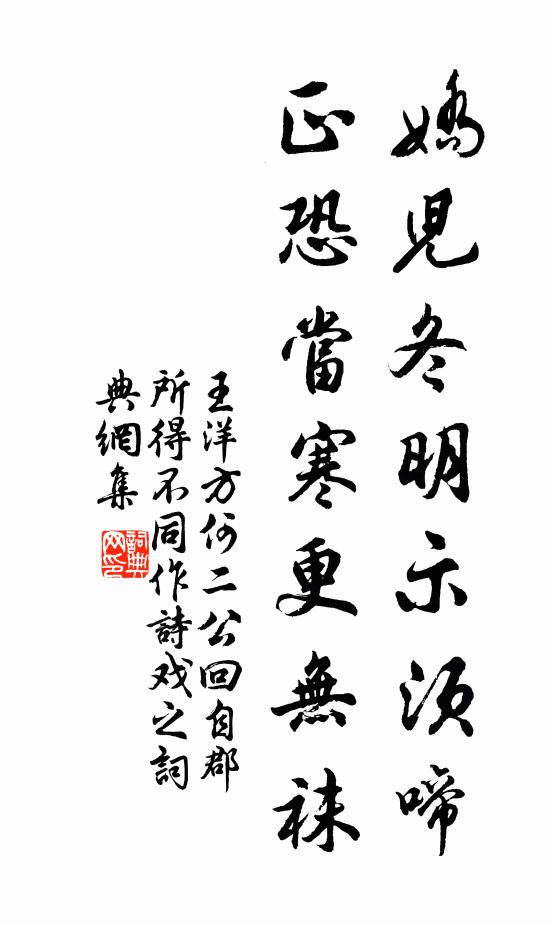 嬌兒冬明示須啼
正恐當寒更無袜
王洋方何二公回自郡
所得不同作詩戏之詞
典網集
詞典
网印